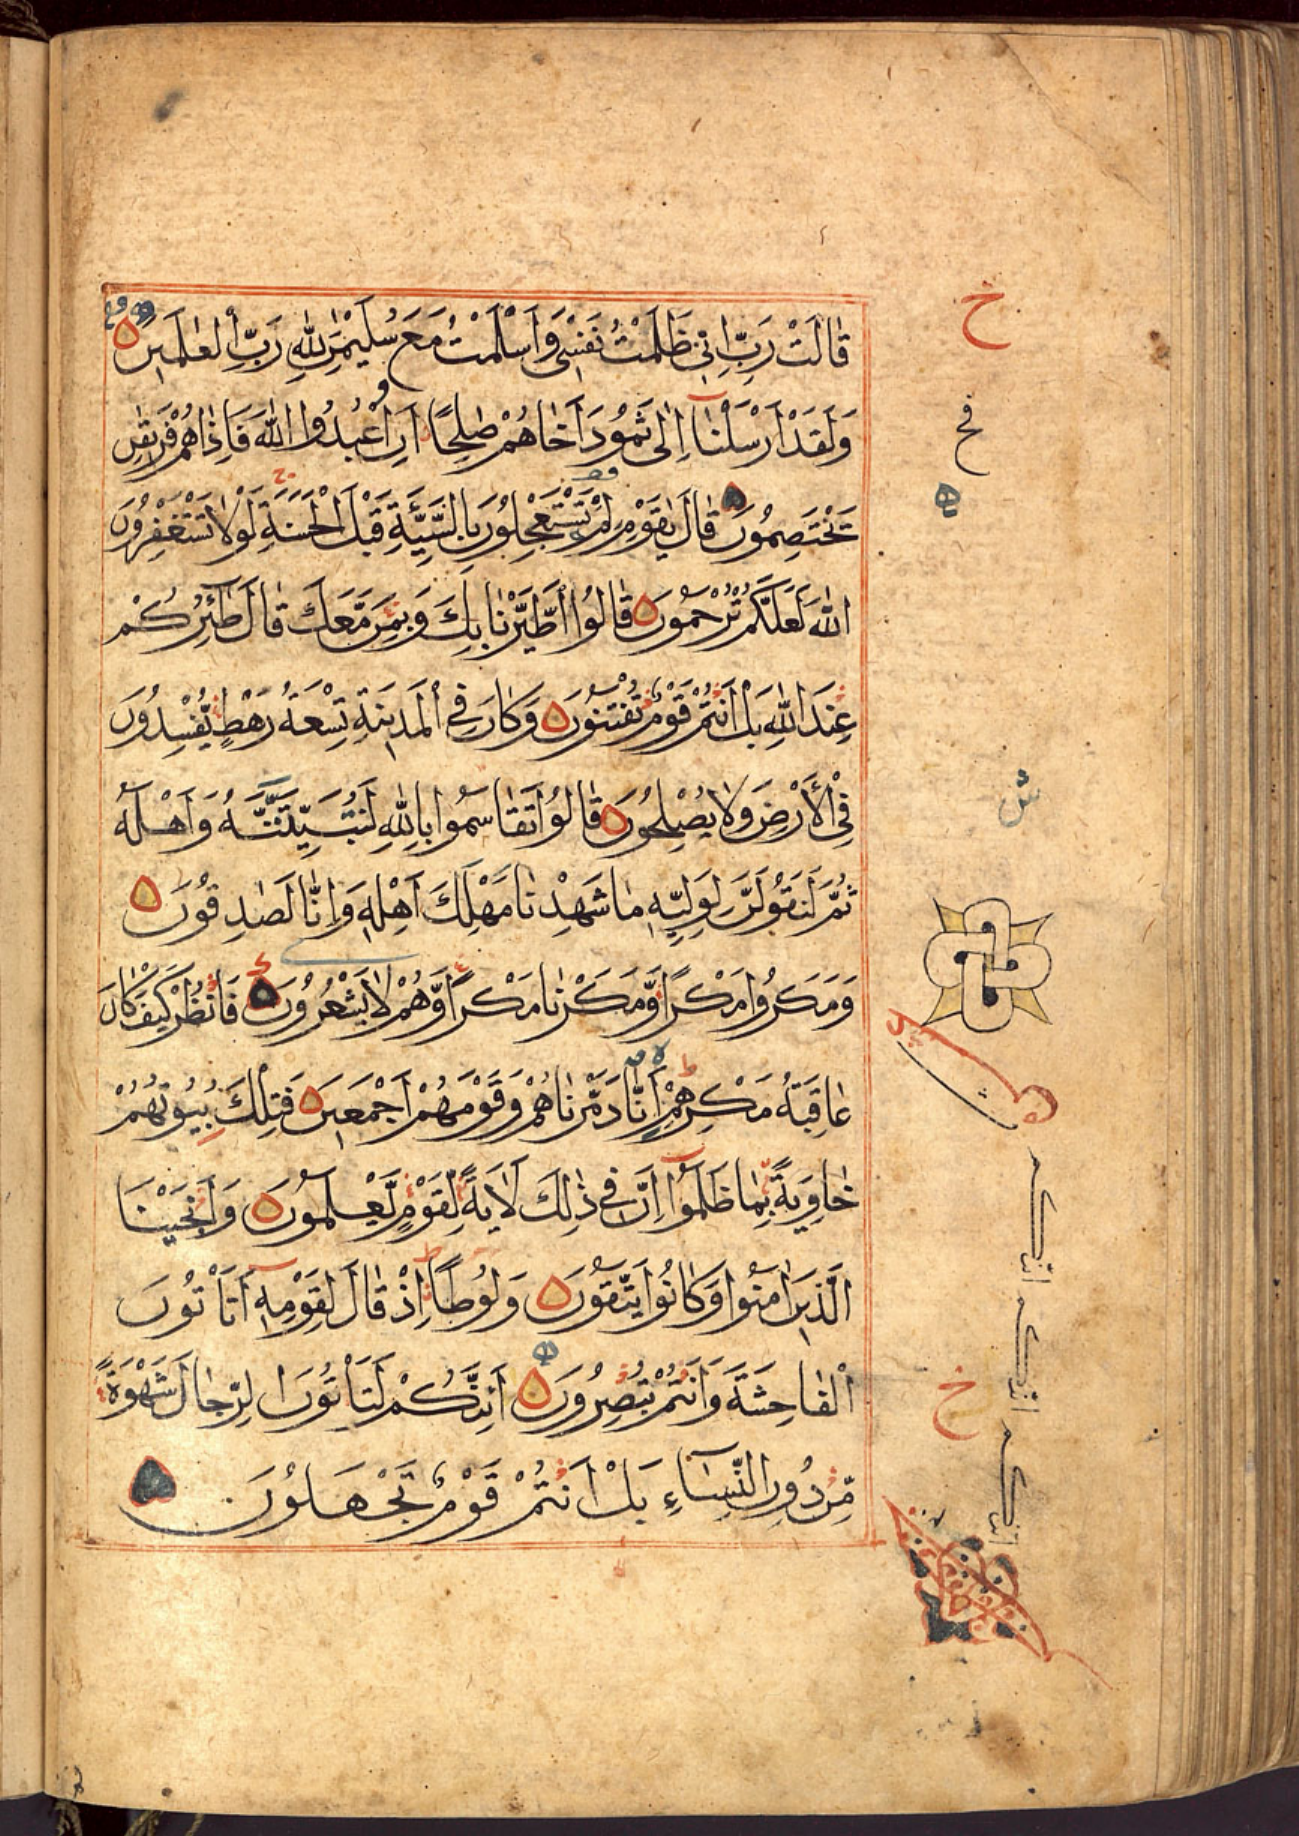 قَالَتْ رَبِّ اِنِّى ظَلَمْتُ نَفْسِى وَاَسْلَمْتُ مَعَ سُلَيْمٰنَ لِلّٰهِ رَبِّ الْعٰلَمِينَ
وَلَقَدْ اَرْسَلْنَآ اِلٰى ثَمُوْدَ اَخَاهُمْ صٰلِحًا اَنِ اعْبُدُوا اللّٰهَ فَاِذَاهُمْ فَرِيقٰنِ
يَخْتَصِمُونَ قَالَ يٰقَوْمِ لِمَ تَسْتَعْجِلُوْنَ بِالسَّيِّئَةِ قَبْلَ الْحَسَنَةِ لَوْلَا تَسْتَغْفِرُوْنَ
اللّٰهَ لَعَلَّكُمْ تُرْحَمُوْنَ قَالُوا اطَّيَّرْنَا بِكَ وَبِمَنْ مَّعَكَ قَالَ طٰٓئِرُكُمْ
عِنْدَ اللّٰهِ بَلْ اَنْتُمْ قَوْمٌ تُفْتَنُوْنَ وَكَانَ فِى الْمَدِينَةِ تِسْعَةُ رَهْطٍ يُّفْسِدُوْنَ
فِى الْاَرْضِ وَلَا يُصْلِحُوْنَ قَالُوْا تَقَاسَمُوا بِاللّٰهِ لَنُبَيِّتَنَّهُ وَاَهْلَهُ
ثُمَّ لَنَقُوْلَنَّ لِوَلِيِّهٖ مَا شَهِدْنَا مَهْلِكَ اَهْلِهٖ وَاِنَّا لَصٰدِقُوْنَ
وَمَكَرُوا مَكْرًا وَّمَكَرْنَا مَكْرًا وَّهُمْ لَا يَشْعُرُوْنَ فَانْظُرْ كَيْفَ كَانَ
عَاقِبَةُ مَكْرِهِمْ اَنَّا دَمَّرْنَاهُمْ وَقَوْمَهُمْ اَجْمَعِينَ فَتِلْكَ بُيُوْتُهُمْ
خَاوِيَةً بِمَا ظَلَمُوْٓا اِنَّ فِى ذٰلِكَ لَاٰيَةً لِّقَوْمٍ يَّعْلَمُوْنَ وَاَنْجَيْنَا
الَّذِينَ اٰمَنُوا وَكَانُوْا يَتَّقُوْنَ وَلُوْطًا اِذْ قَالَ لِقَوْمِهٖٓ اَتَأْتُوْنَ
الْفَاحِشَةَ وَاَنْتُمْ تُبْصِرُوْنَ اَئِنَّكُمْ لَتَأْتُوْنَ الرِّجَالَ شَهْوَةً
مِّنْ دُوْنِ النِّسَآءِ بَلْ اَنْتُمْ قَوْمٌ تَجْهَلُوْنَ